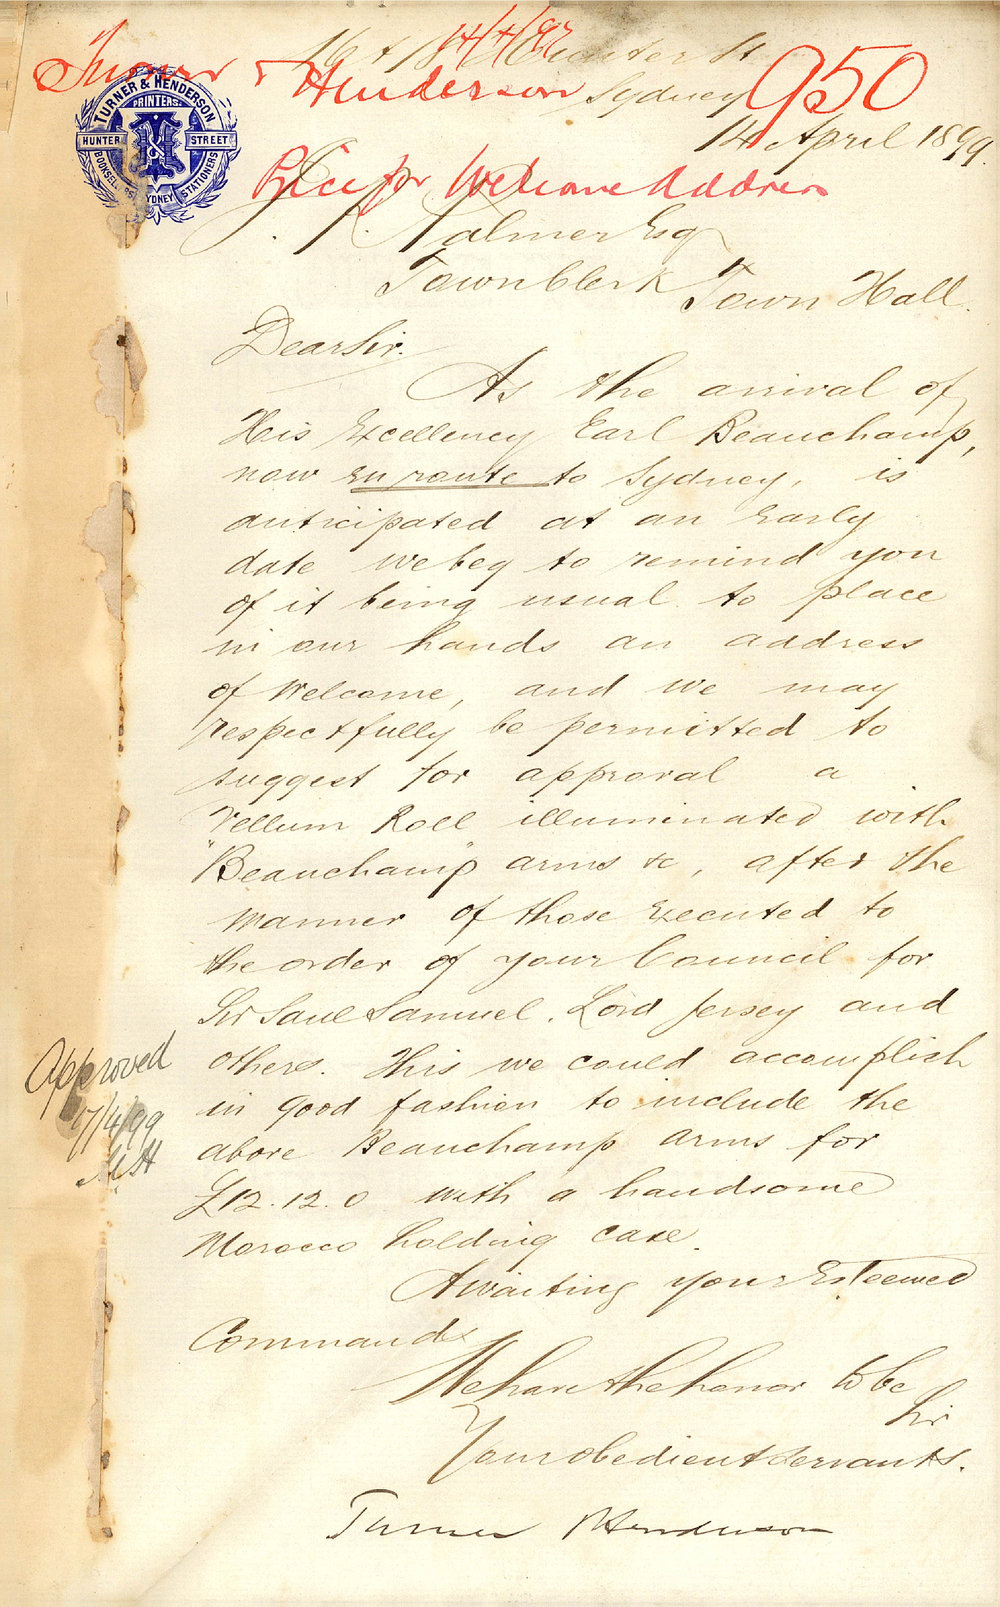 Turner & Henderson
14/4/99
950
Price for Welcome Address
16 & 18 Hunter St
Sydney
14 April 1899.
TURNER & HENDERSON
PRINTERS.
HUNTER STREET
BOOKSELLERS SYDNEY STATIONERS
T&H
Palmer Esq
Town Clerk Town Hall.
Dear Sir.
As the arrival of
His Excellency Earl Beauchamp,
now en route to Sydney, is
anticipated at an early
date we beg to remind you
of it being usual to place
in our hands an address
of Welcome, and we may
respectfully be permitted to
suggest for approval a
Vellum Roll illuminated with
"Beauchamp" arms &c, after the
manner of those executed to
the order of your Council for
Sir Saul Samuel, Lord Jersey and
others. This we could accomplish
in good fashion to include the
above Beauchamp arms for
£12.12.0 with a handsome
Morocco holding case.
Awaiting your Esteemed
Commands
We have the honor to be
Sir
Your obedient servants.
Turner & Henderson
Approved
17/4/99